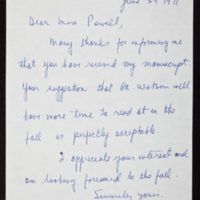 June 29 1971
Dear Mrs. Powell,
Many thanks for informing me
that you have received my manuscript.
Your suggestion that Dr. Watson will
have more time to read it in the
fall is perfectly acceptable.
I appreciate your interest and
am looking forward to the fall.
Sincerely yours,